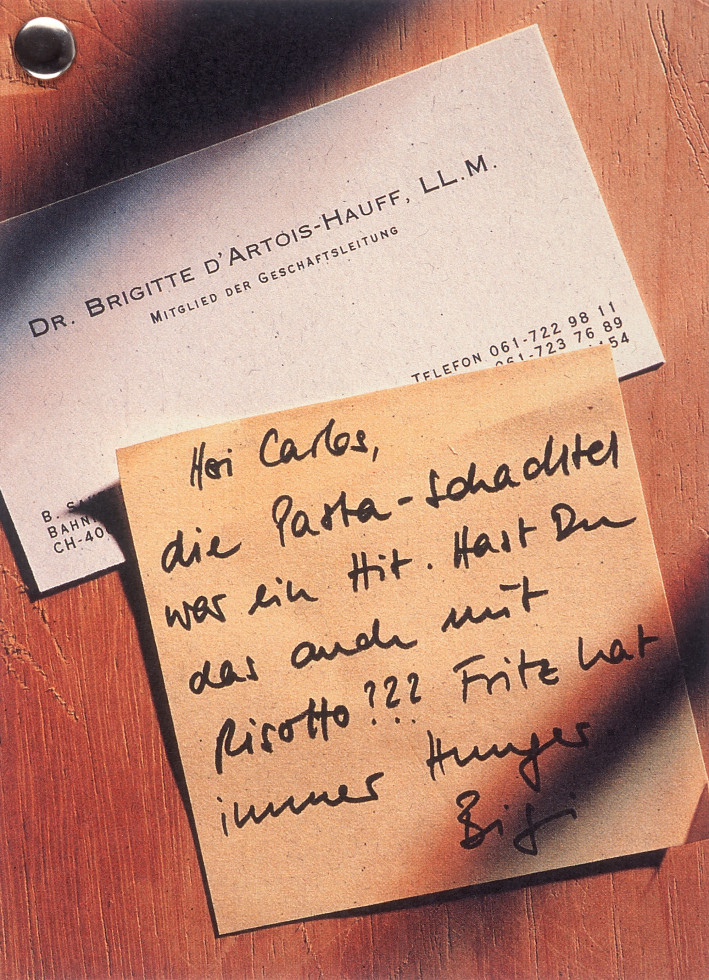 DR. BRIGITTE D'ARTOIS-HAUFF, LL.M.
MITGLIED DER GESCHÄFTSLEITUNG
TELEFON 061-722 98 11
061-723 76 89
54
B.
BAHN
CH-40
Hoi Carlos,
die Pasta-Schachtel
war ein Hit. Hast Du
das auch mit
Risotto??? Fritz hat
immer Hunger.
Bigi